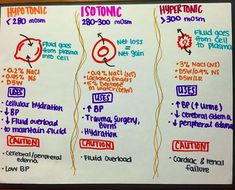 HYPOTONIC
<280 mOsm
Fluid goes
from plasma
into cell
0.2% NaCl
0.45% NS
USES
Cellular hydration
↑ BP
↓ Fluid overload
to maintain fluid
CAUTION
Cerebral/peripheral
edema
Low BP
ISOTONIC
280-300 mOsm
Net loss =
Net gain
0.9% NaCl
Lactated Ringers
5% Dextrose
USES
↑ BP
Trauma, Surgery,
Burns
Hydration
CAUTION
Fluid Overload
HYPERTONIC
>300 mOsm
Fluid goes
from cell
to plasma
3% NaCl
USES
↑ BP (↑ urine)
↓ cerebral edema
↓ peripheral edema
CAUTION
Cardiac & renal
failure